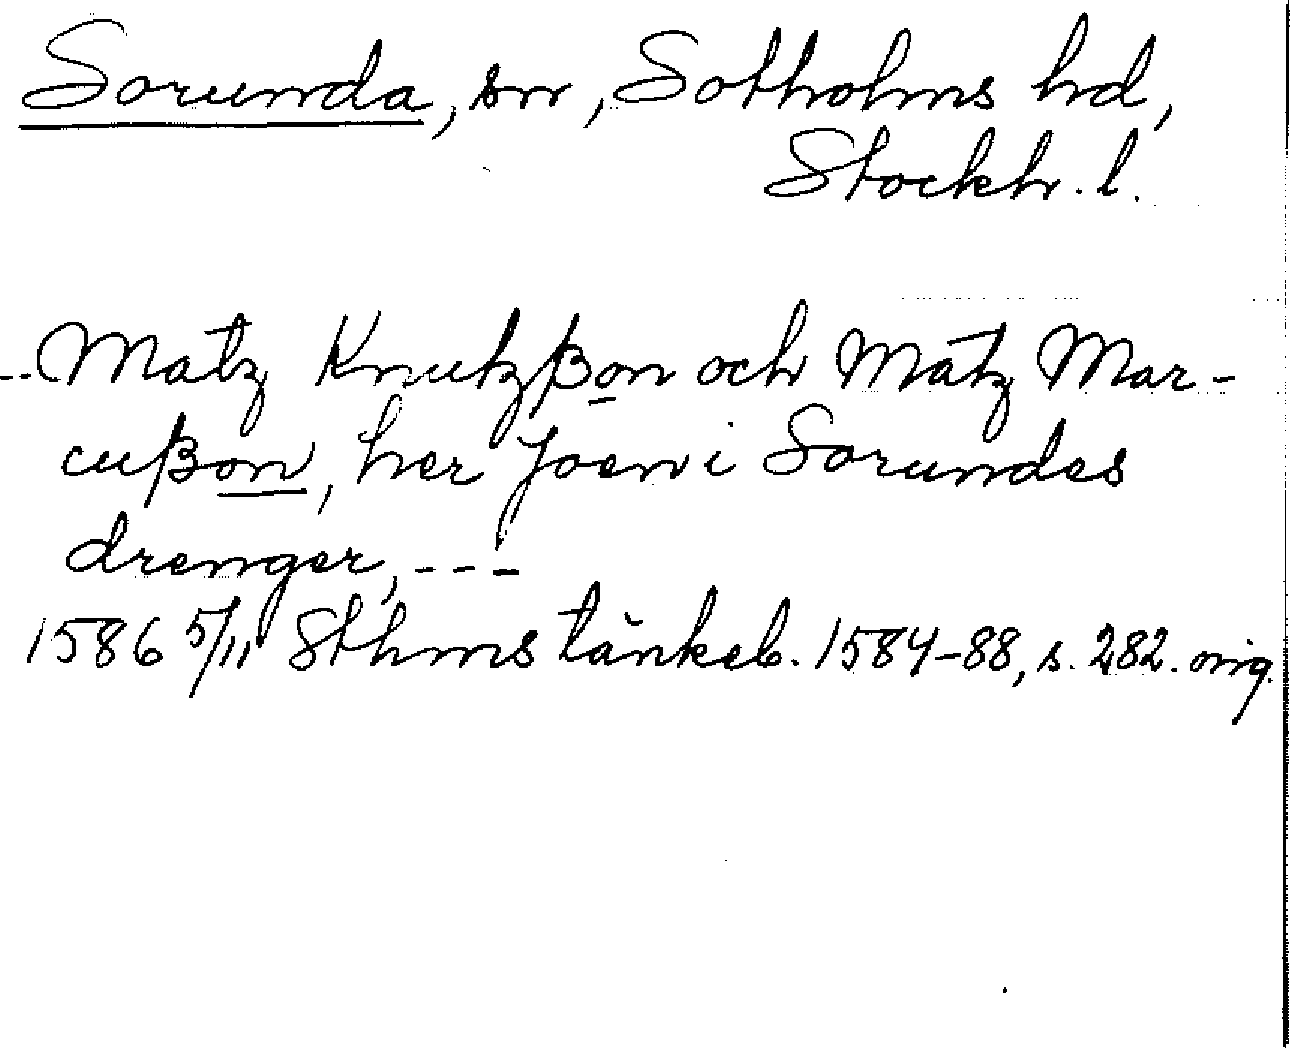 Sorunda, sn, Sotholms hd,
Stockh. l.
--- Matz Knutzßon och Matz Mar-
cußon, her Joen i Sorundes
drenger, ---
1586 5/11 Sthms tänkeb. 1584-88, s. 282. orig.